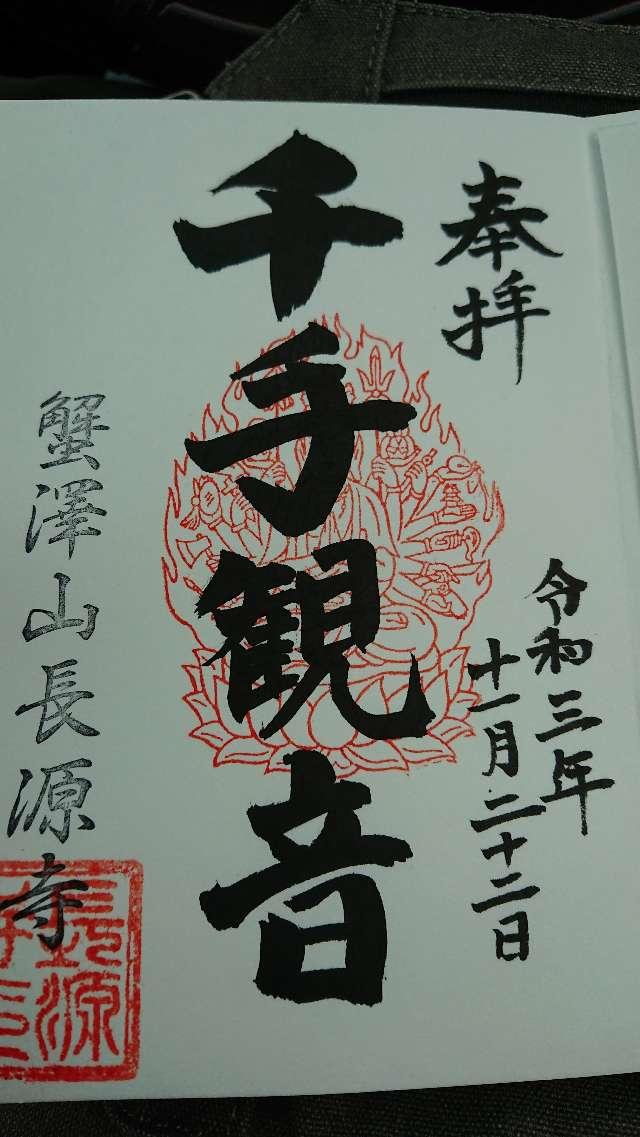 奉拝
令和三年
十一月二十二日
千手観音
蟹澤山長源寺
長源